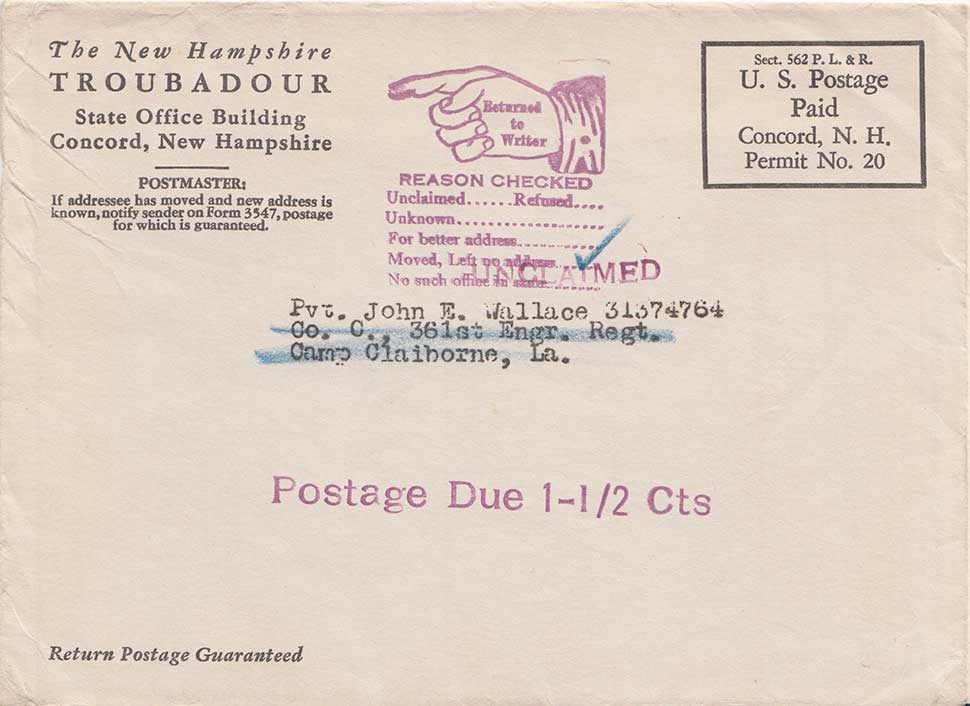 The New Hampshire
TROUBADOUR
State Office Building
Concord, New Hampshire
POSTMASTER:
If addressee has moved and new address is
known, notify sender on Form 3547, postage
for which is guaranteed.
Returned
to
Writer
REASON CHECKED
Unclaimed......Refused....
Unknown...................
For better address...............
Moved, Left no address...
No such office in state..........
UNCLAIMED
Sect. 562 P. L. & R.
U. S. Postage
Paid
Concord, N. H.
Permit No. 20
Pvt. John E. Wallace 31374764
Co. C., 361st Engr. Regt.
Camp Claiborne, La.
Postage Due 1-1/2 Cts
Return Postage Guaranteed